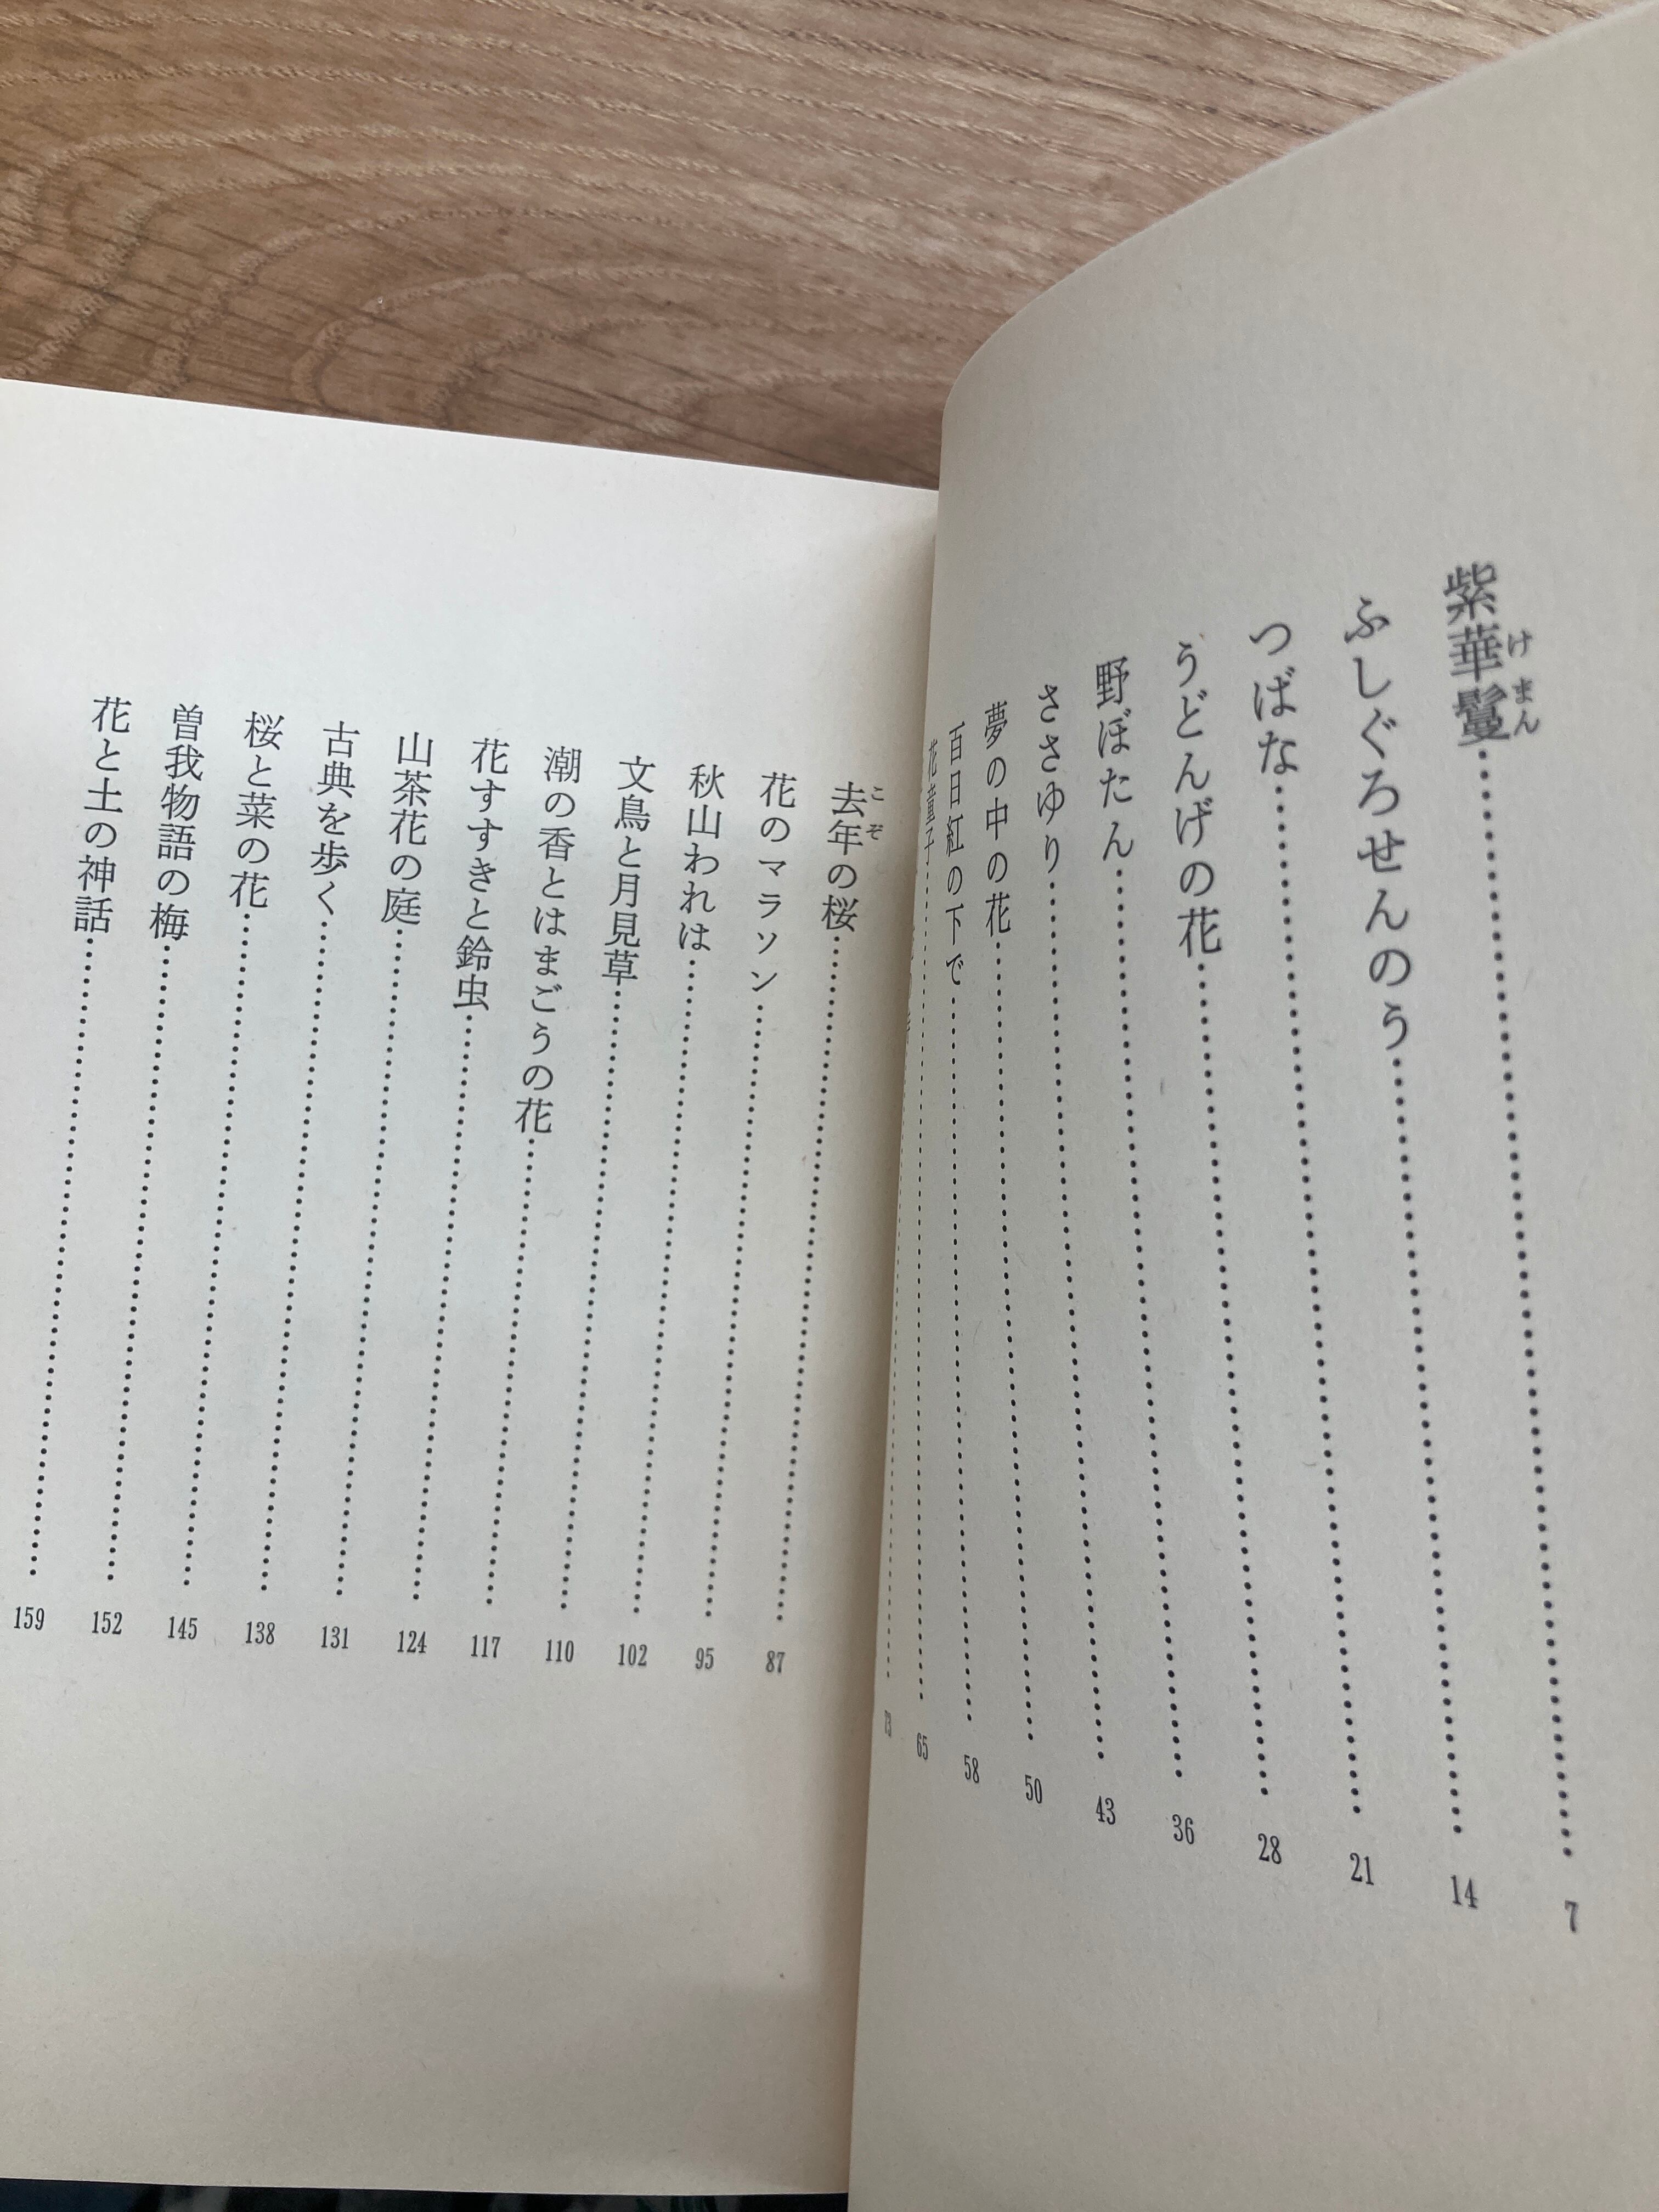 紫華鬘 けまん……7
ふしぐろせんのう……14
つばな……21
うどんげの花……28
野ぼたん……36
ささゆり……43
夢の中の花……50
百日紅の下で……58
花童子……65
73
去年 こぞ の桜……87
花のマラソン……95
秋山われは……102
文鳥と月見草……110
潮の香とはまごうの花……117
花すすきと鈴虫……124
山茶花の庭……131
古典を歩く……138
桜と菜の花……145
曽我物語の梅……152
花と土の神話……159